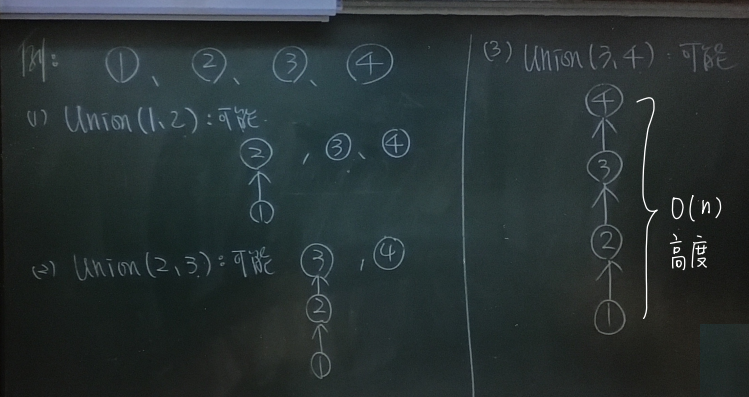 例: ①、②、③、④
(1) Union(1、2):可能
② , ③、④
①
(2) Union(2,3):可能
③ , ④
②
①
(3) Union(3,4):可能
④
③
②
①
O(n)
高度